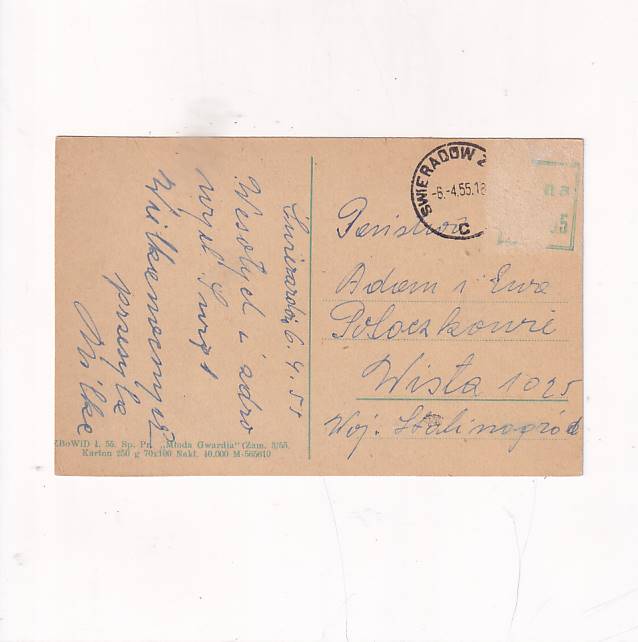 Świeradów 6.4.55
Wesołych i zdro
wych Świąt
Wielkanocnych
przesyła
Milka
ŚWIERADÓW Z
-6.-4.55.18
C
na
Państwo
Adam i Ewa
Poloczkowie
Wisła 1025
Woj. Stalinogród
ZBoWiD I. 55. Sp. Pr. „Młoda Gwardia" (Zam. 3/55.
Karton 250 g 70x100 Nakł. 40.000 M-565610